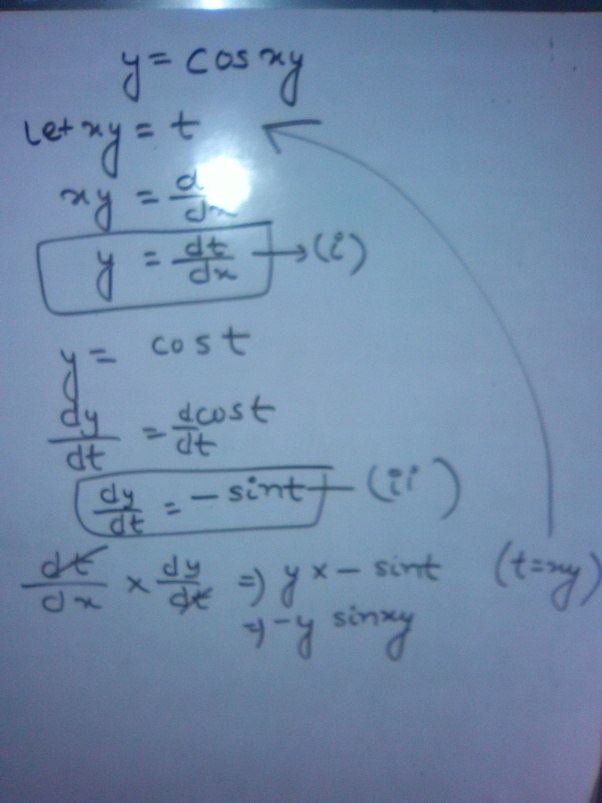 y = cos xy
Let xy = t
xy = d/dx
y = dt/dx → (i)
y = cos t
dy/dt = d cos t/dt
dy/dt = - sin t — (ii)
dt/dx × dy/dt ⇒ y × - sin t (t = xy)
⇒ - y sin xy